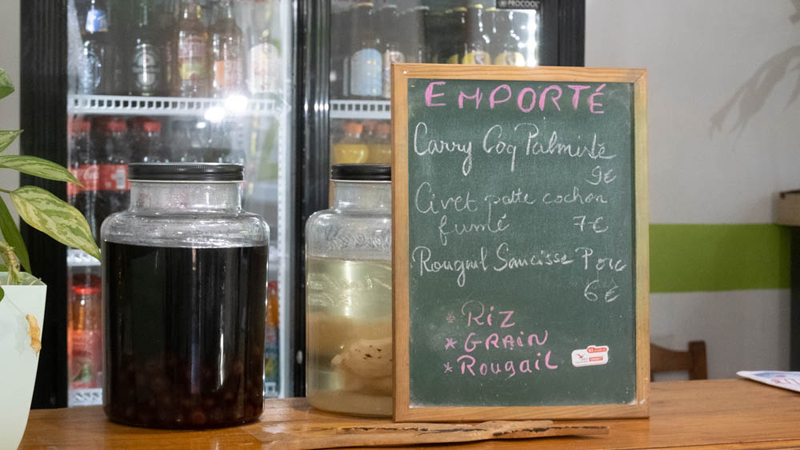 EMPORTÉ
Carry Coq Palmiste
9€
Civet patte cochon
fumé 7€
Rougail Saucisse Porc
6€
* RIZ
* GRAIN
* Rougail